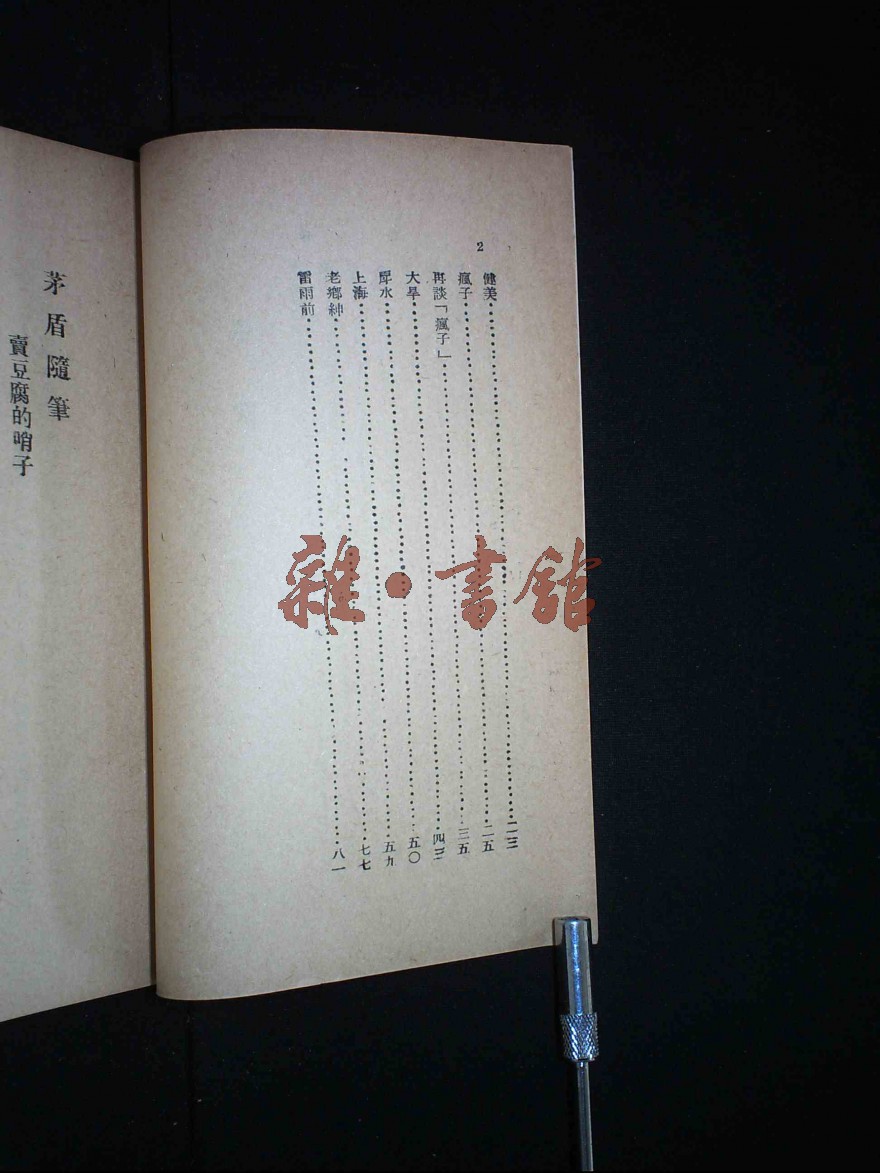 2
健美……二三
瘋子……二五
再談「瘋子」……三五
大旱……四三
戽水……五〇
上海……五九
老鄉紳……七七
雷雨前……八一
茅盾隨筆
賣豆腐的哨子
雜·書館